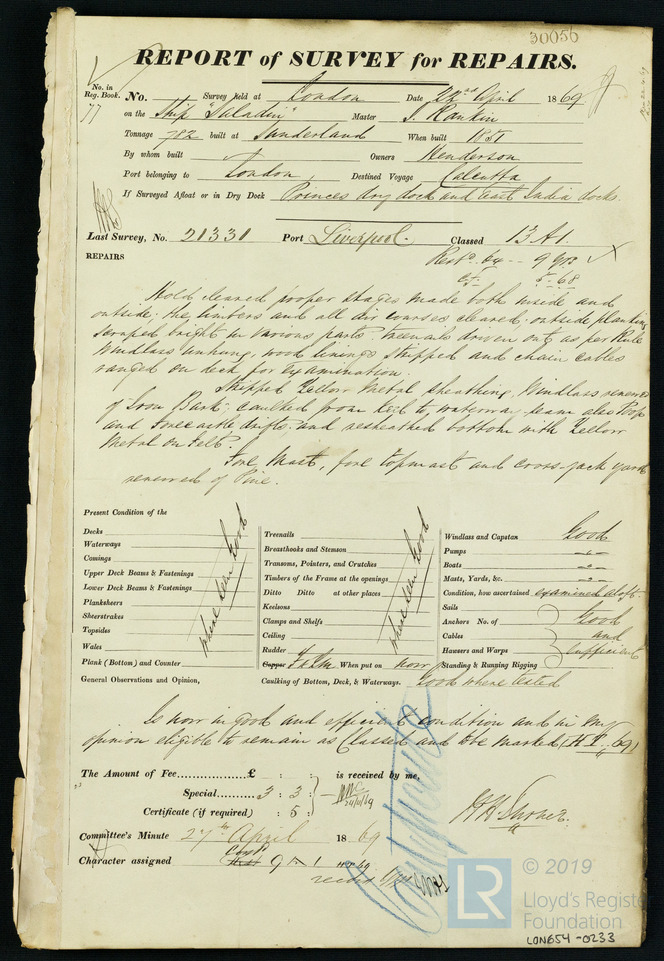 30056
REPORT of SURVEY for REPAIRS.
No. in Reg. Book.
77
No. Survey held at London Date 22nd April 1869
on the Ship "Saladin" Master J. Rankin
Tonnage 782 built at Sunderland When built 1851
By whom built Owners Henderson
Port belonging to London Destined Voyage Calcutta
If Surveyed Afloat or in Dry Dock Princes dry dock and East India docks.
Last Survey, No. 21331 Port Liverpool. Classed 13 A1.
REPAIRS
Restd. 64 -- 9 yrs
5-68
Hold cleared proper stages made both inside and
outside, the limbers and all air courses cleared, outside planking
scraped bright in various parts treenails driven out as per Rule
Windlass unhung, wood linings stripped and chain cables
ranged on deck for examination.
Stripped Yellow Metal sheathing, Windlass renewed
of Iron Bark, caulked from keel to waterway seam also Poop
and Forecastle drifts and resheathed bottom with Yellow
Metal on Felt.
Fore Mast, fore topmast and cross-jack yard
renewed of Pine.
Present Condition of the
Decks
Waterways
Comings
Upper Deck Beams & Fastenings
Lower Deck Beams & Fastenings
Planksheers
Sheerstrakes
Topsides
Wales
Plank (Bottom) and Counter
where seen Good
Treenails
Breasthooks and Stemson
Transoms, Pointers, and Crutches
Timbers of the Frame at the openings
Ditto Ditto at other places
Keelsons
Clamps and Shelfs
Ceiling
Rudder
Copper When put on now
where seen Good
Windlass and Capstan Good
Pumps -"-
Boats -"-
Masts, Yards, &c. -"-
Condition, how ascertained examined aloft.
Sails
Anchors No. of Good
Cables and
Hawsers and Warps sufficient
Standing & Running Rigging
General Observations and Opinion, Caulking of Bottom, Deck, & Waterways. Good where tested
Is now in good and efficient condition and in my
opinion eligible to remain as Classed and to be marked
The Amount of Fee..................£ : : is received by me,
Special........... 3 : 3 :
24/4/69
Certificate (if required) : 5 :
Committee's Minute 27th April 1869
Character assigned
© 2019
LR
Lloyd's Register
Foundation
LON654-0233